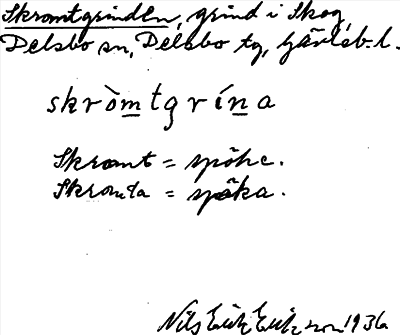 Skromtgrinden, grind i Skog,
Delsbo sn, Delsbo tg, Gävleb. l.
skròmtgrína
Skromt = spöke.
Skromta = spöka.
Nils Erik Erikson 1936